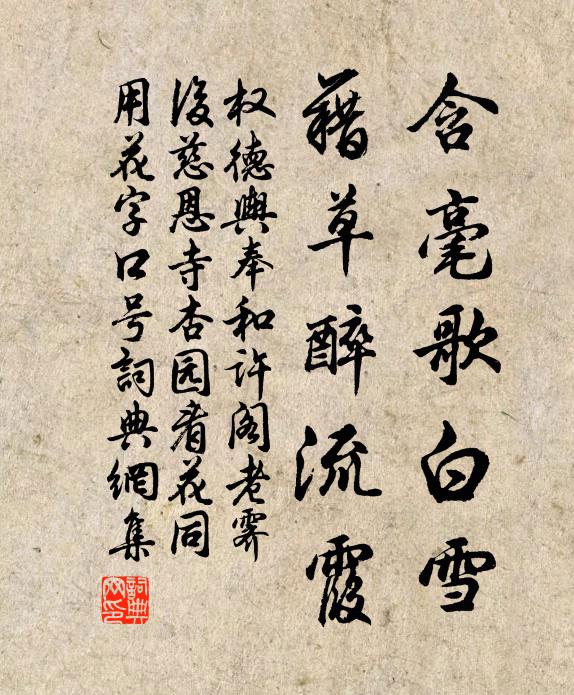 含毫歌白雪
藉草醉流霞
权德輿奉和许阁老霁
後慈恩寺杏园看花同
用花字口号詞典網集
詞典网印